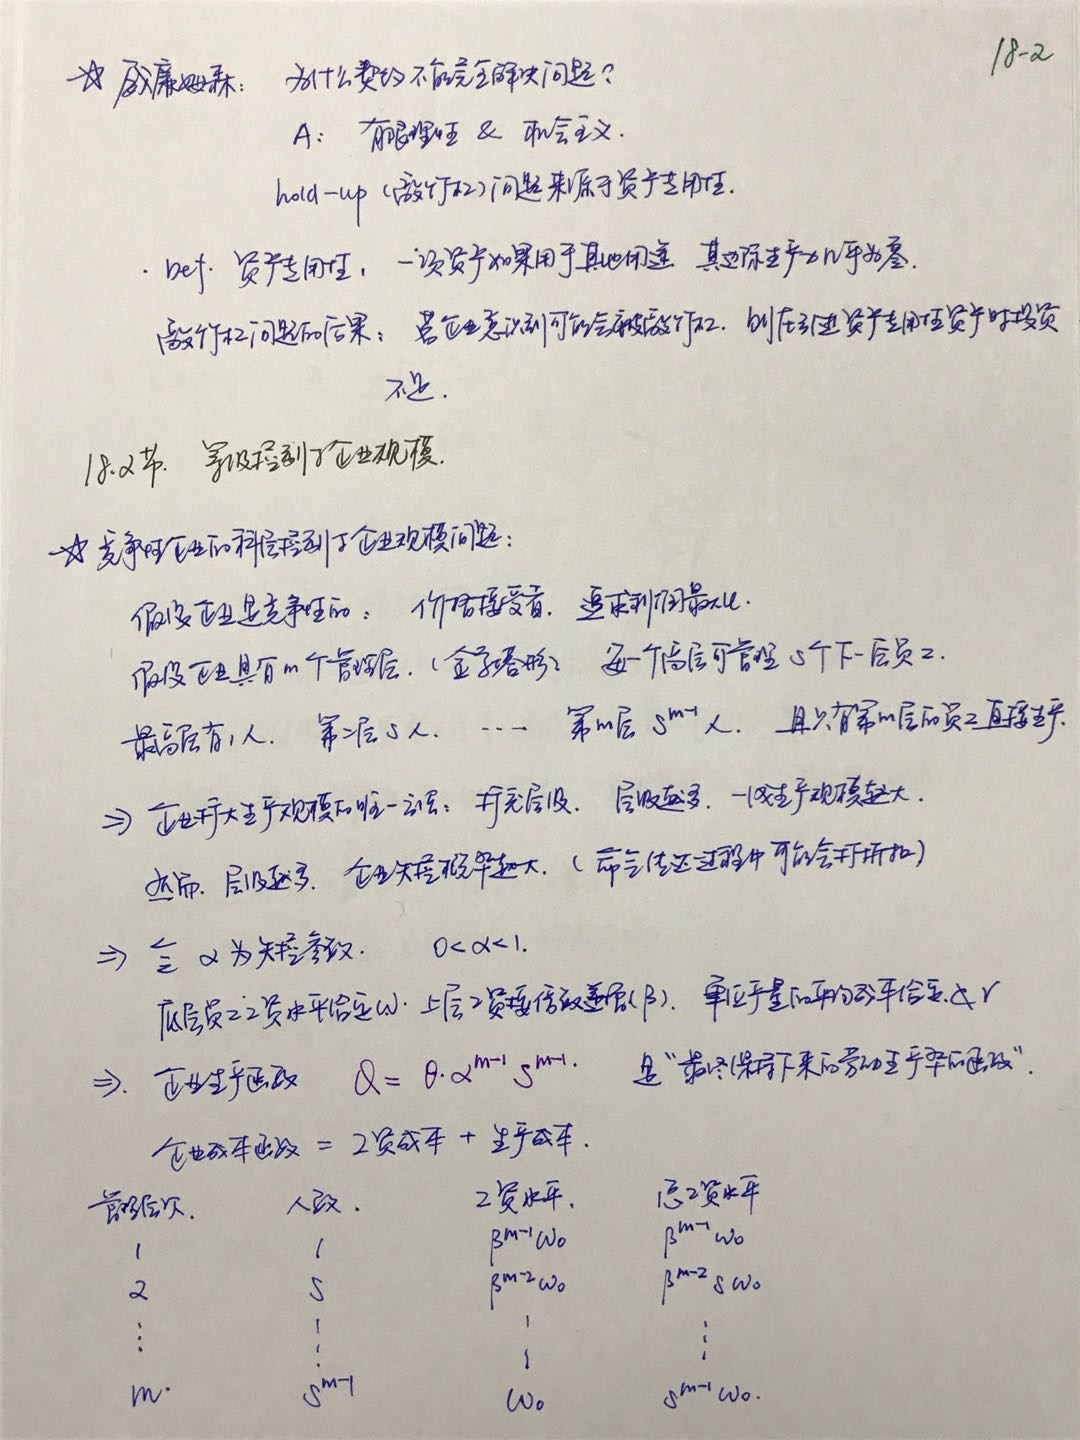 18-2
☆ 威廉姆森: 为什么契约不能完全解决问题?
A: 有限理性 & 机会主义.
hold-up (敲竹杠)问题来源于资产专用性.
· Def. 资产专用性, 一项资产如果用于其他用途, 其边际生产力几乎为零.
敲竹杠问题的后果: 若企业意识到可能会被敲竹杠, 则在引进资产专用性资产时投资
不足.
18.2节. 等级控制与企业规模.
☆ 竞争性企业的科层控制与企业规模问题:
假设企业是竞争性的: 价格接受者, 追求利润最大化.
假设企业具有m个管理层, (金字塔形) 每一个高层可管理s个下一层员工.
最高层有1人, 第二层s人, ⋯ 第m层 s^{m-1}人, 且只有第m层的员工直接生产.
⇒ 企业扩大生产规模的唯一办法: 扩充层级, 层级越多, 一般生产规模越大.
然而, 层级越多, 企业失控概率越大. (命令传达过程中可能会打折扣)
⇒ 令 α 为失控参数. 0<α<1.
底层员工工资水平给定ω. 上层工资按倍数递增(β), 单位产量的平均成本给定 r
⇒. 企业生产函数 Q = θ·α^{m-1} s^{m-1}. 是“最终保持下来的劳动生产率的函数”.
企业成本函数 = 工资成本 + 生产成本.
管理层次. 人数. 工资水平. 总工资水平
1 1 β^{m-1}ω₀ β^{m-1}ω₀
2 s β^{m-2}ω₀ β^{m-2} s ω₀
⋮ ⋮ ⋮ ⋮
m. s^{m-1} ω₀ s^{m-1} ω₀.